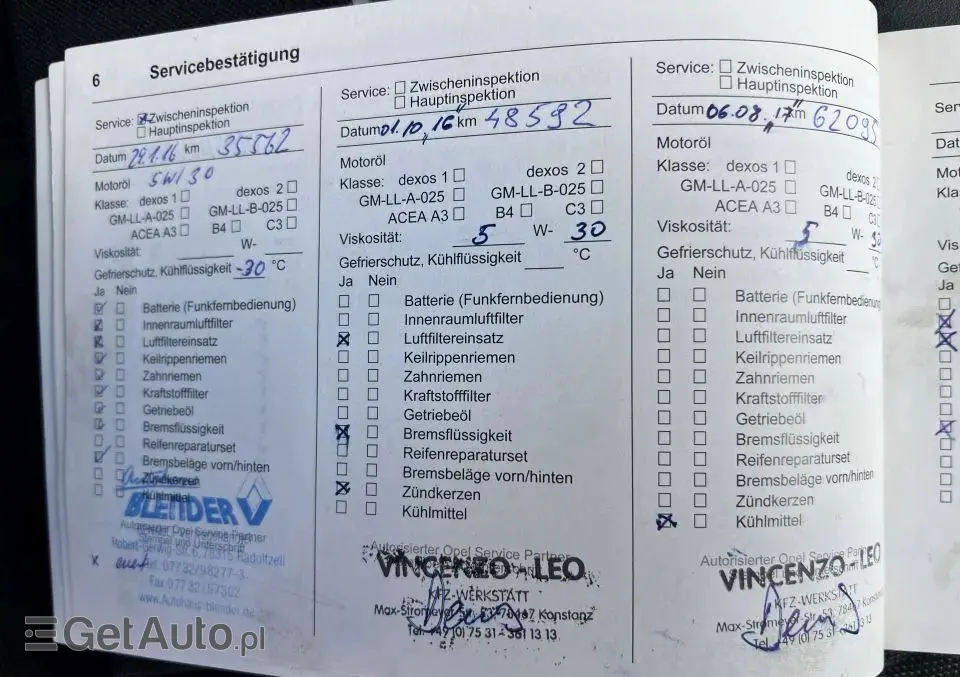 6 Servicebestätigung
Service: Zwischeninspektion
Hauptinspektion
Datum 29.1.16 km 35562
Motoröl 5W/30
Klasse: dexos 1 dexos 2
GM-LL-A-025 GM-LL-B-025
ACEA A3 B4 C3
Viskosität: W-
Gefrierschutz, Kühlflüssigkeit -30 °C
Ja Nein
Batterie (Funkfernbedienung)
Innenraumluftfilter
Luftfiltereinsatz
Keilrippenriemen
Zahnriemen
Kraftstofffilter
Getriebeöl
Bremsflüssigkeit
Reifenreparaturset
Bremsbeläge vorn/hinten
Zündkerzen
Kühlmittel
BLENDER
Autorisierter Opel Service Partner
Stempel und Unterschrift
Robert-Gerwig-Str. 6, 78315 Radolfzell
Tel. 07732/98277-3
Fax 07732/57302
www.Autohaus-blender.de
Service: Zwischeninspektion
Hauptinspektion
Datum 01.10.16 km 48592
Motoröl
Klasse: dexos 1 dexos 2
GM-LL-A-025 GM-LL-B-025
ACEA A3 B4 C3
Viskosität: 5 W- 30
Gefrierschutz, Kühlflüssigkeit °C
Ja Nein
Batterie (Funkfernbedienung)
Innenraumluftfilter
Luftfiltereinsatz
Keilrippenriemen
Zahnriemen
Kraftstofffilter
Getriebeöl
Bremsflüssigkeit
Reifenreparaturset
Bremsbeläge vorn/hinten
Zündkerzen
Kühlmittel
Autorisierter Opel Service Partner
VINCENZO LEO
KFZ-WERKSTATT
Max-Stromeyer-Str. 78467 Konstanz
Tel. +49 (0) 75 31 - 361 13 13
Service: Zwischeninspektion
Hauptinspektion
Datum 06.08.17 km 62095
Motoröl
Klasse: dexos 1 dexos 2
GM-LL-A-025 GM-LL-B-025
ACEA A3 B4 C3
Viskosität: 5 W- 30
Gefrierschutz, Kühlflüssigkeit °C
Ja Nein
Batterie (Funkfernbedienung
Innenraumluftfilter
Luftfiltereinsatz
Keilrippenriemen
Zahnriemen
Kraftstofffilter
Getriebeöl
Bremsflüssigkeit
Reifenreparaturset
Bremsbeläge vorn/hinten
Zündkerzen
Kühlmittel
Autorisierter Opel Service Partner
VINCENZO LEO
KFZ-WERKSTATT
Max-Stromeyer-Str. 78467 Konstanz
Tel. +49 (0) 75 31 - 361 13 13
Ser
Dat
Mot
Kla
Vis
Ge
Ja
GetAuto.pl